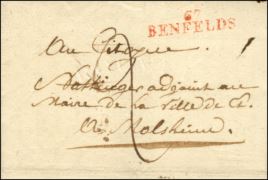 67
BENFELDS
Au Citoyen
adjoint au
Maire de la Ville de
A Molsheim